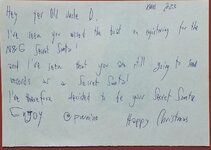 Hey yer old uncle D,
I've seen you missed the boat on registering for the
NBG Secret Santa!
and I've seen that you are still going to send
records as a Secret Santa!
I've therefore decided to be your Secret Santa
Enjoy Happy Christmas